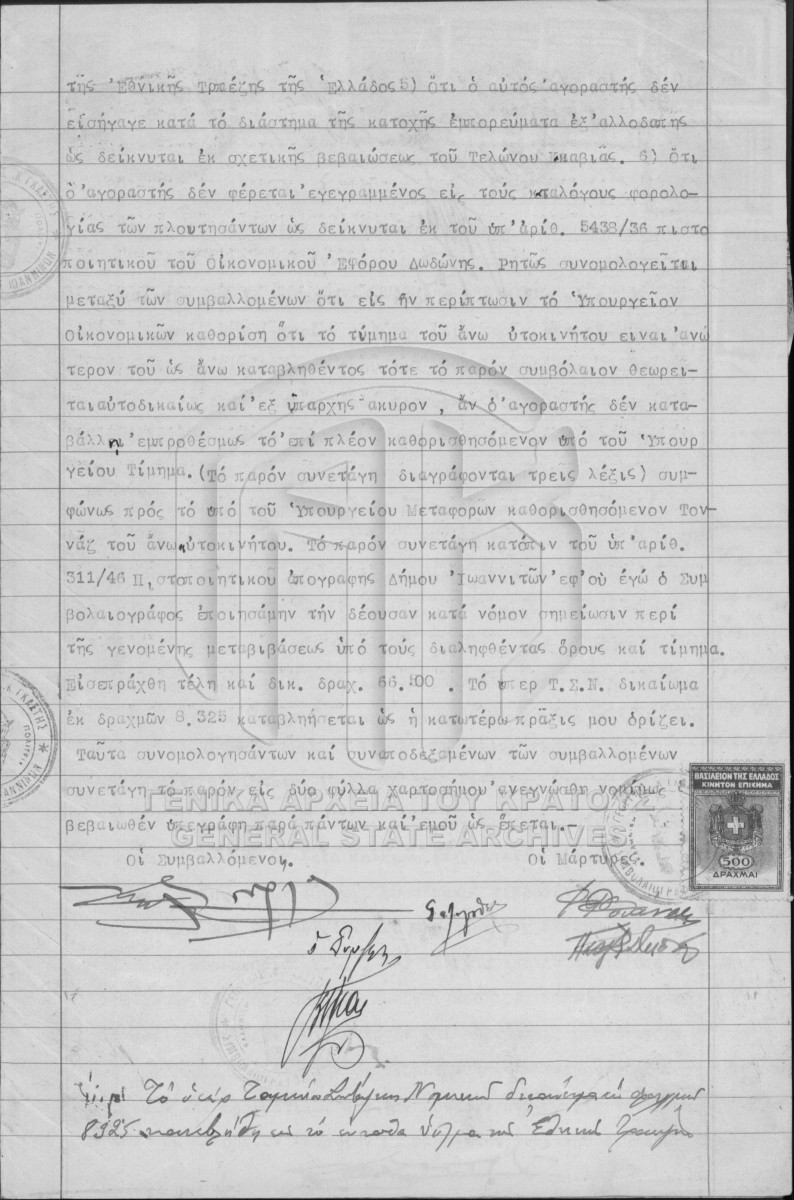 τῆς Ἐθνικῆς Τραπέζης τῆς Ἑλλάδος 5) Ὅτι ὁ αὐτός ἀγοραστής δέν
εἰσήγαγε κατά τό διάστημα τῆς κατοχῆς ἐμπορεύματα ἐξ'ἀλλοδαπης
ὡς δείκνυται ἐκ σχετικῆς βεβαιώσεως τοῦ Τελώνου 6) ὅτι
ὁ'αγοραστής δέν φέρεται'εγεγραμμένος εἰς τούς καταλόγους φορολο-
γίας τῶν πλουτησάντων ὡς δείκνυται ἐκ τοῦ ὑπ'ἀρίθ. 5438/36 πιστο
ποιητικοῦ τοῦ Οἰκονομικοῦ Ἐφόρου Δωδώνης. Ρητῶς συνομολογεῖται
μεταξύ τῶν συμβαλλομένων ὅτι εἰς ἥν περίπτωσιν τό Ὑπουργεῖον
Οἰκονομικῶν καθορίση ὅτι τό τίμημα τοῦ ἄνω ὐτοκινήτου ειναι'ανώ
τερον τοῦ ὡς ἄνω καταβληθέντος τότε τό παρόν συμβόλαιον θεωρεῖ-
ταιαὐτοδικαίως καί'εξ ὑπαρχῆς ἄκυρον, ἄν ὁ'αγοραστής δέν κατα-
βάλλῃ'εμπροθέσμως τό'επί πλέον καθορισθησόμενον ὑπό τοῦ Ὑπουρ
γείου Τίμημα.(Τό παρόν συνετάγη διαγράφονται τρεις λέξις) συμ-
φώνως πρός τό ὑπό τοῦ Ὑπουργείου Μεταφορῶν καθορισθησόμενον Τον-
νάζ τοῦ ἄνω αὐτοκινήτου. Τό παρόν συνετάγη κατόπιν τοῦ ὑπ'αρίθ.
311/46 Πιστοποιητικοῦ ἀπογραφῆς Δήμου Ἰωαννιτῶν'εφ'οὗ ἐγώ ὁ Συμ
βολαιογράφος ἐποιησάμην τήν δέουσαν κατά νόμον σημείωσιν περί
τῆς γενομένης μεταβιβάσεως ὑπό τούς διαληφθέντας ὅρους καί τίμημα.
Εἰσεπράχθη τέλη καί δικ. δραχ. 66.500 . Τό ὑπερ Τ.Σ.Ν. δικαίωμα
ἐκ δραχμῶν 8.325 καταβληήσεται ὡς ἡ κατωτέρω πρᾶξις μου ὁρίζει.
Ταῦτα συνομολογησάντων καί συναποδεξαμένων τῶν συμβαλλομένων
συνετάγη τό παρόν εἰς δύο φύλλα χαρτοσήμου ἀνεγνώσθη νομίμως
βεβαιωθέν ὑπεγράφη παρά πάντων καί'εμοῦ ὡς ἕπεται.-
Οἱ Συμβαλλόμενοι. Οἱ Μάρτυρες.
ΒΑΣΙΛΕΙΟΝ ΤΗΣ ΕΛΛΑΔΟΣ
ΚΙΝΗΤΟΝ ΕΠΙΣΗΜΑ
500
ΔΡΑΧΜΑΙ
ΓΕΝΙΚΑ ΑΡΧΕΙΑ ΤΟΥ ΚΡΑΤΟΥΣ
GENERAL STATE ARCHIVES
Τό ὑπέρ Ταμείου Νομικῶν δικαίωμα ἐκ δραχμῶν
8325 κατεβλήθη εἰς τό Ἐθνικῆς Τραπέζης